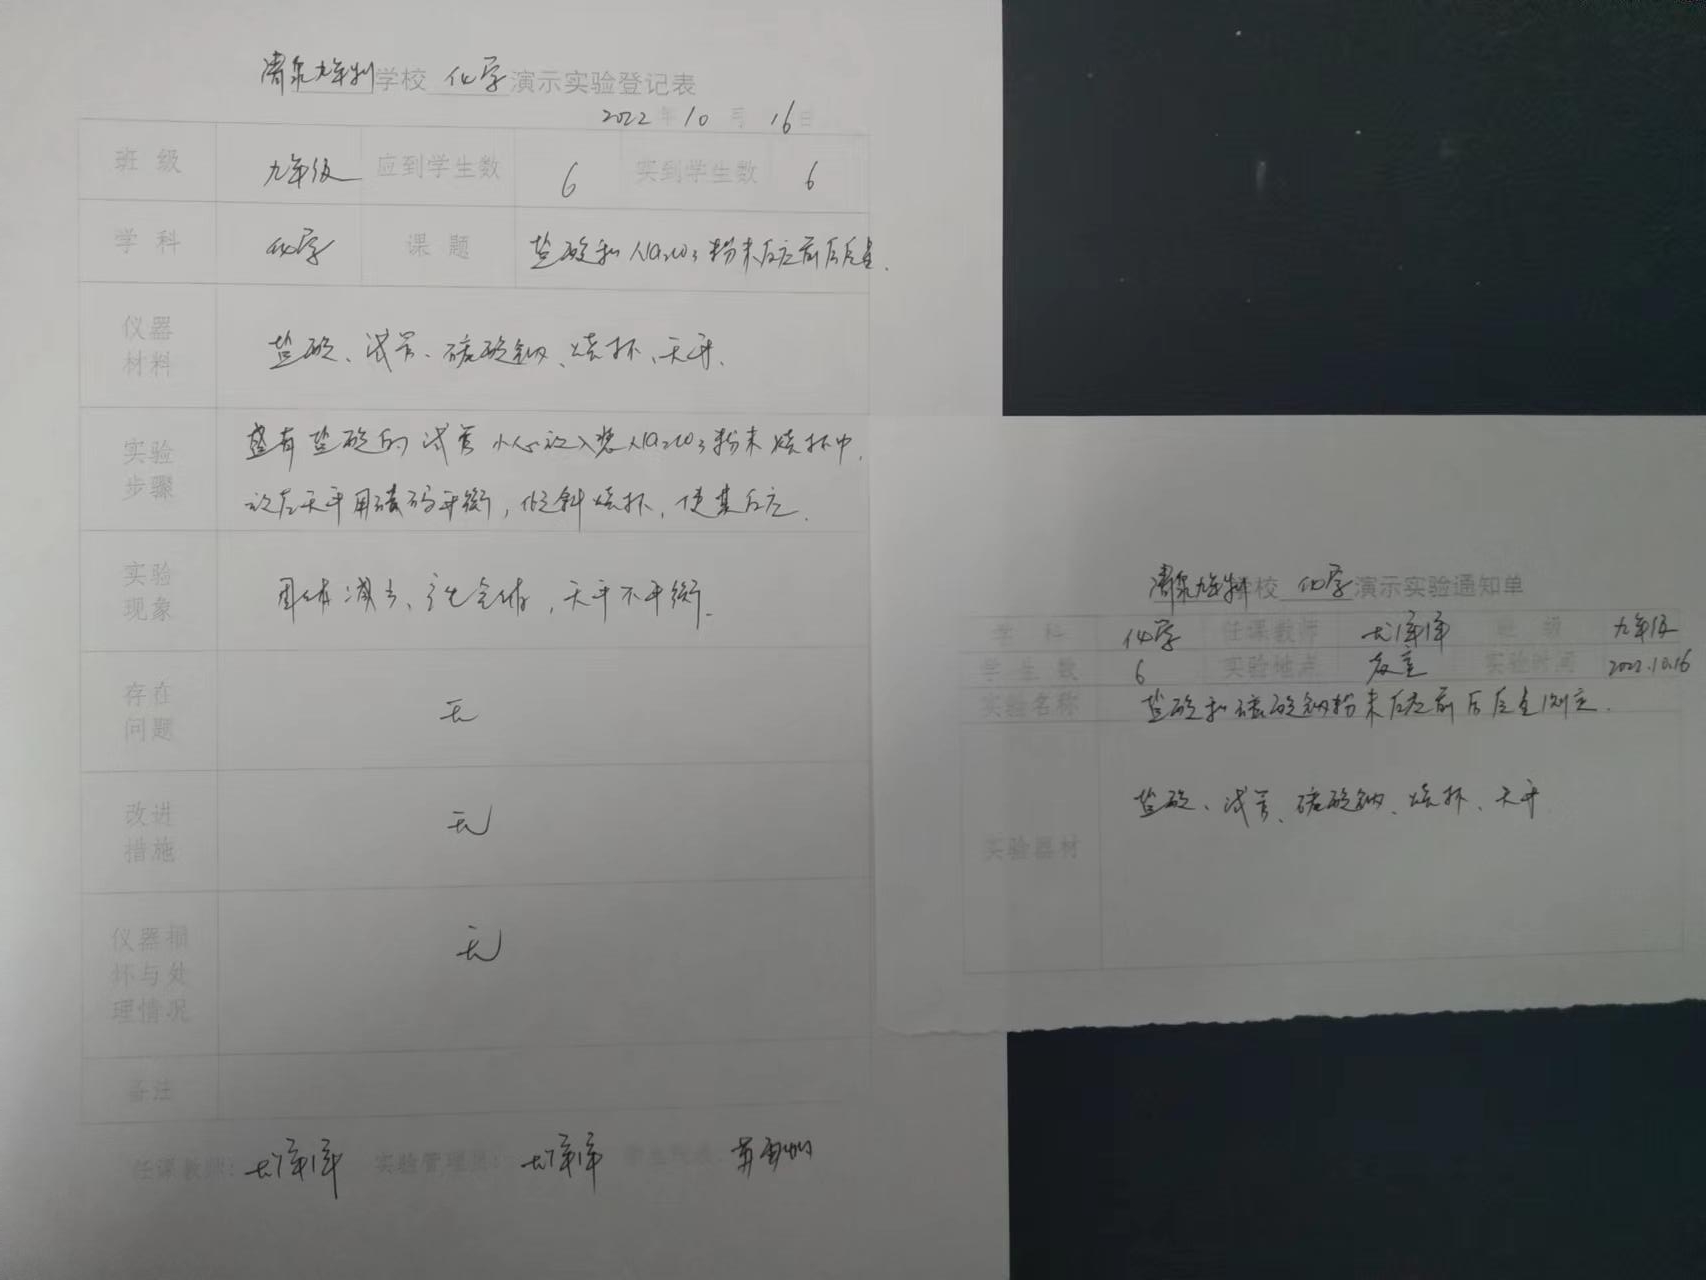 清泉九年制学校 化学 演示实验登记表
2022年10月16日
班级 九年级 应到学生数 6 实到学生数 6
学科 化学 课题 盐酸和Na2CO3粉末反应前后质量.
仪器材料 盐酸、试管、碳酸钠、烧杯、天平.
实验步骤 盛有盐酸的试管小心放入装Na2CO3粉末烧杯中.
放在天平用砝码平衡,倾斜烧杯,使其反应.
实验现象 固体减少、产生气体,天平不平衡.
存在问题 无
改进措施 无
仪器损坏与处理情况 无
备注
任课教师: 实验管理员: 学生代表
清泉九年制学校 化学 演示实验通知单
学科 化学 任课教师 班级 九年级
学生数 6 实验地点 教室 实验时间 2022.10.16
实验名称 盐酸和碳酸钠粉末反应前后质量测定.
实验器材 盐酸、试管、碳酸钠、烧杯、天平